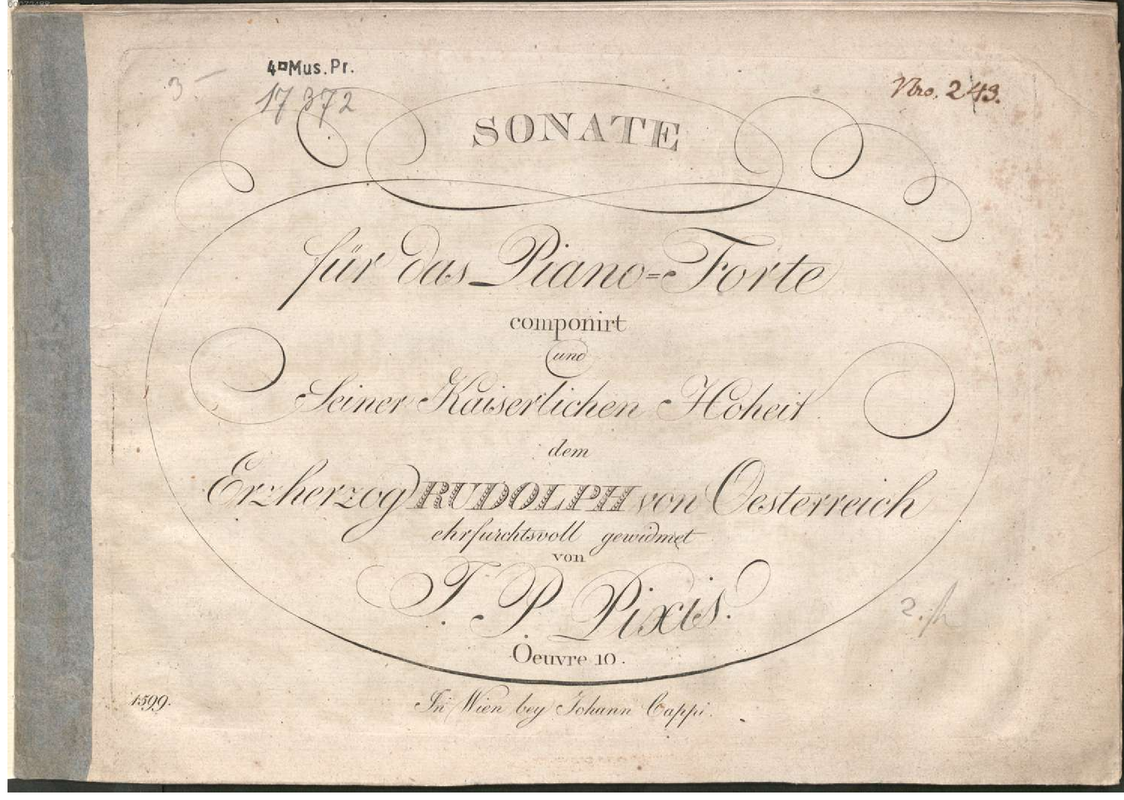 4° Mus. Pr.
17372
3 –
Nro. 243.
SONATE
für das Piano=Forte
componirt
und
Seiner Kaiserlichen Hoheit
dem
Erzherzog RUDOLPH von Oesterreich
ehrfurchtsvoll gewidmet
von
J. P. Pixis.
Oeuvre 10.
1599.
In Wien bey Johann Cappi.